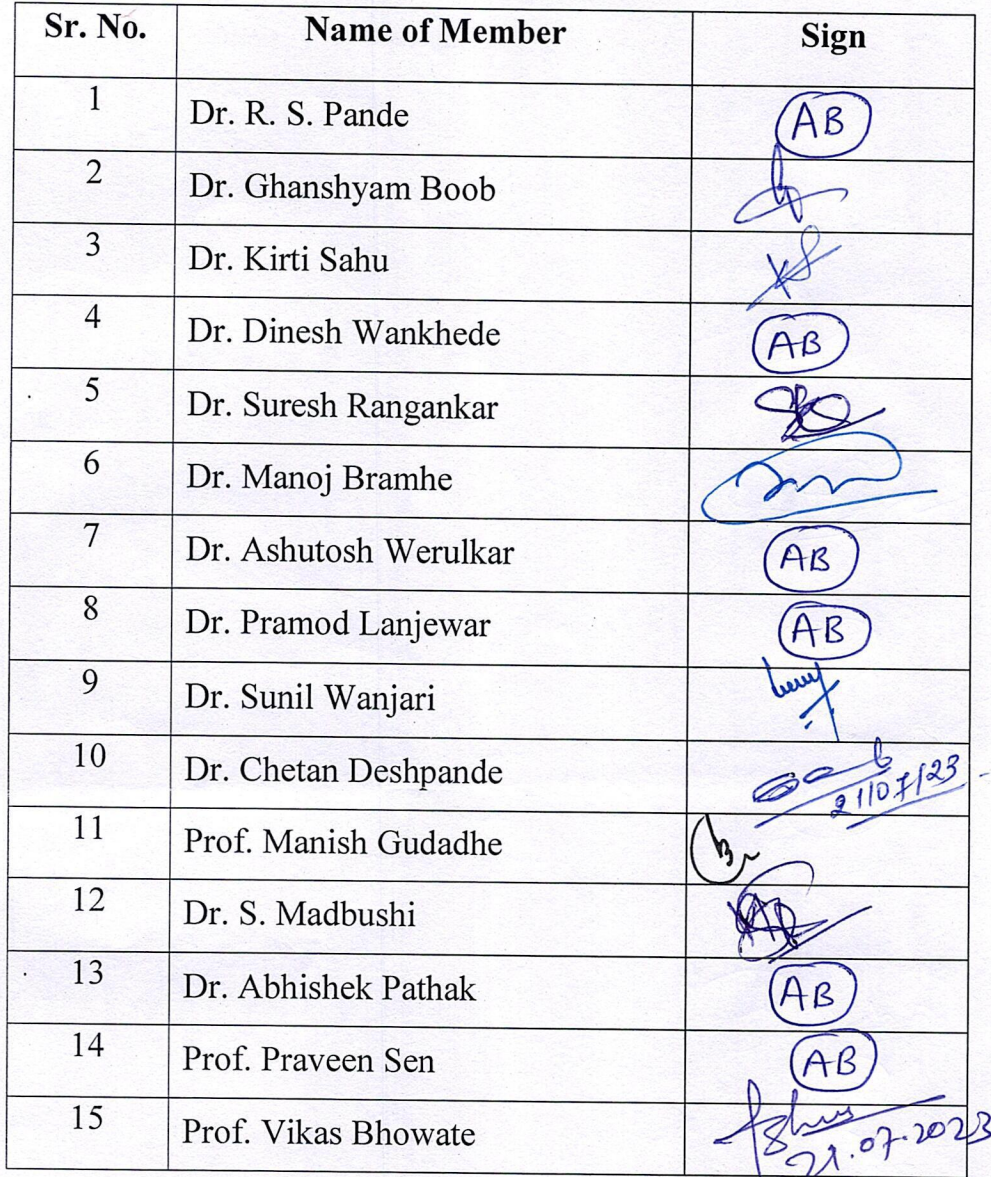 Sr. No. Name of Member Sign
1 Dr. R. S. Pande AB
2 Dr. Ghanshyam Boob
3 Dr. Kirti Sahu
4 Dr. Dinesh Wankhede AB
5 Dr. Suresh Rangankar
6 Dr. Manoj Bramhe
7 Dr. Ashutosh Werulkar AB
8 Dr. Pramod Lanjewar AB
9 Dr. Sunil Wanjari
10 Dr. Chetan Deshpande 21/07/23
11 Prof. Manish Gudadhe
12 Dr. S. Madbushi
13 Dr. Abhishek Pathak AB
14 Prof. Praveen Sen AB
15 Prof. Vikas Bhowate 21.07.2023